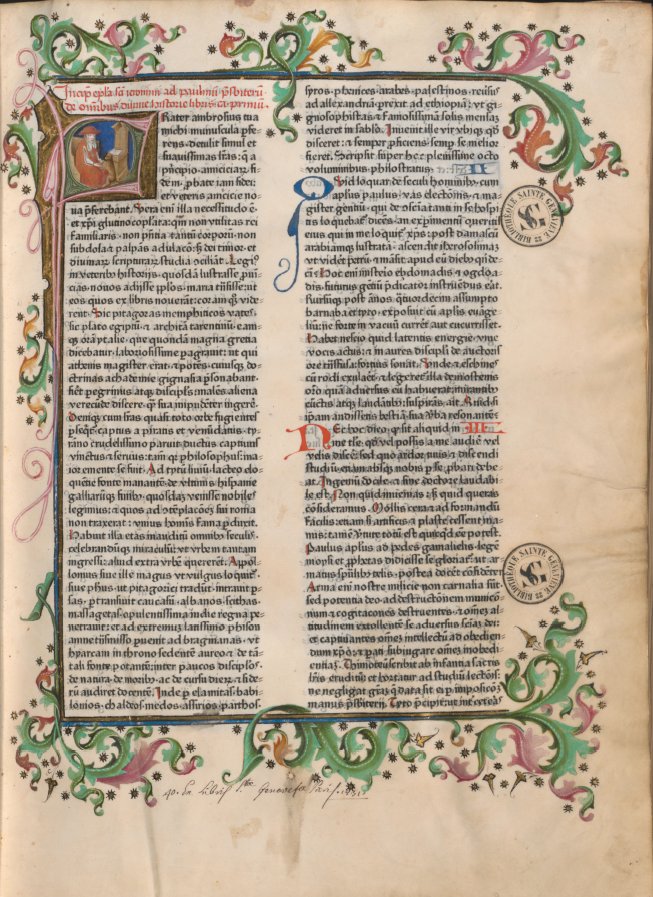 Incip̄ epl̄a sc̄i ieronimi ad paulinū p̄sbiterū
de om̄ibus diuine historie libris ca. primū.
Frater ambrosius tua
michi munuscula p̄fe-
rens. detulit simul et
suauissimas l̄ras: q̄ a
pͥncipio amiciciaꝝ fi-
dem. ꝓbate iam fidei
et veteris amicicie no-
ua p̄ferebant. Vera em̄ illa necessitudo ē.
et xp̄i glutino copulata: quā non vtilitas rei
familiaris. non pͥntia tantū corpoꝝ. non
subdola ⁊ palpās adulacō: sꝫ dei timor. et
diuinaꝝ scripturaꝝ studia ꝯciliāt. Legiꝰ
in veteribꝰ historijs. quosdā lustrasse ꝓuī-
cias. nouos adijsse ppl̄os. maria trāsisse: ut
eos quos ex libris nouerāt: coram qͦꝫ vide-
rent. Sic pitagoras memphiticos vates.
sic plato egiptū. ⁊ architā tarentinū. eam-
qꝫ orā ytalie. que quondā magna grecia
dicebatur. laboriosissime ꝑagrauit: ut qui
athenis magister erat. ⁊ potēs. cuiusqꝫ do-
ctrinas achademie gignasia ꝑsonabant.
fiēt peregrinus atqꝫ discipl̄s. malēs aliena
verecūde discere: qͣꝫ sua impudēter ingere.
Deniqꝫ cum l̄ras quasi toto orbe fugientes
ꝑseqͥt̄. captus a piratis et venūdatus. ty-
ranno crudelissimo paruit. ductus captiuus
vinctus ⁊ seruus: tam̄ qꝛ philosophus: ma-
ior emente se fuit. Ad tytū liuiū. lacteo elo-
quēcie fonte manantē. de vltimis hispanie
galliarūqꝫ finibꝰ. quosdaꝫ venisse nobiles
legimus: ⁊ quos ad ꝯtēplacōeꝫ sui roma
non traxerat: vnius hominis fama ꝑduxit.
Habuit illa etas inauditū omnibꝰ seculis.
celebrandūqꝫ miraculū: vt vrbem tantam
ingressi: aliud extra vrbē quererēt. Appol-
lonius siue ille magus vt vulgus loquit̄.
siue ph̄us. ut pitagorici tradūt. intrauit ꝑ-
sas. ꝑtransiuit caucasū. albanos. scithas.
massagetas. opulentissima indie regna pe-
netrauit: et ad extremū latissimo phison
amne trāsmisso ꝑuenit ad bragmanas. vt
hyarcam in throno sedentē aureo. ⁊ de tā-
tali fonte potantē: inter paucos discipl̄os.
de natura. de moribꝰ. ac de cursu dieꝝ. ⁊ side-
rū audiret docentē. Inde ꝑ elamitas. babi-
lonios. chaldeos. medos. assirios. parthos.
syros. phenices. arabes. palestinos. reūsus
ad allexandriā: ꝑrexit ad ethiopiā: vt gi-
gnosophistas. ⁊ famosissimā solis mensaꝫ
videret in sabl̄o. Inuenit ille vir vbiqꝫ qd̄
disceret: ⁊ semper ꝓficiens: semꝑ se melior
fieret. Scripsit super hec plenissime octo
voluminibꝰ philostratus. II
Quid loquar de seculi hominibꝰ: cum
apl̄us paulus. vas electōnis. ⁊ ma-
gister gentiū. qui de ꝯsciētia tanti in se hospi-
tis loquebat̄ dicēs. an exꝑimentū queritis
eius qui in me loquit̄ xp̄s: post damascū
arabiamqꝫ lustratā: ascendit iherosolimaꝫ
vt videt petrū. ⁊ māsit apud eū diebꝰ quide-
cī. Hoc em̄ misterio ebdomadis ⁊ ogdoa-
dis. futurus gentiū p̄dicator instruendꝰ erat.
Rursūqꝫ post ānos quatuordecim assumpto
barnaba et tyto. exposuit cū apl̄is euāge-
liū: ne forte in vacuū currēt aut cucurrisset.
Habet nescio quid latentis energie. viue
vocis actus: ⁊ in aures discipl̄i de auctoris
ore trāsfusa: fortius sonat. Unde ⁊ eschines
cū rodi exularet. ⁊ legeret̄ illa demostenis
orō. quā aduersus eū habuerat. mirantibꝰ
cūctis atqꝫ laudātibꝰ: suspirās ait. Quid si
ip̄am audissetis bestiā: sua ꝟba resonantē.
Nec hoc dico. qͦ sit aliquid in III
me tale. qd̄ vel possis a me audire. vel
velis discē: sed quo ardor tuus. ⁊ discendi
studiū. etiam absqꝫ nobis ꝑ se ꝓbari debe-
at. Ingeniū docile. ⁊ sine doctore laudabi-
le est. Non quid inuenias: sꝫ quid queras
ꝯsideramus. Mollis cera ⁊ ad formandū
facilis: etiam si artificis ⁊ plaste cessent ma-
nus: tamē ꝟtute totū est: quicqͥd eē potest.
Paulus apl̄us ad pedes gamalielis. legē
moysi et ꝓphetas didicisse se gloriat̄: ut ar-
matus spūalibꝰ telis. postea docēt cōfidēter
Arma em̄ nostre milicie non carnalia sūt.
sed potentia deo ad destructōnem municō-
num ⁊ cogitaciones destruentes. ⁊ om̄ez al-
titudinem extollentē se aduersus sciaꝫ dei:
et captiuantes om̄ez intellectū ad obedien-
dum xp̄o: ⁊ ꝑati subiugare om̄ez inobedi-
entiaꝫ. Thimoteū scribit ab infantia sacris
l̄ris eruditū: et hortatur ad studiū lectōis:
ne negligat gr̄aꝫ q̄ data sit ei. ꝑ imposicōeꝫ
manus p̄sbiterij. Tyto p̄cipit: ut int̄ ceteras
BIBLIOTHÈQUE SAINTE GENEVIÈVE
SG
BIBLIOTHÈQUE SAINTE GENEVIÈVE
SG
Ex Libris Stae Genovefae Paris.